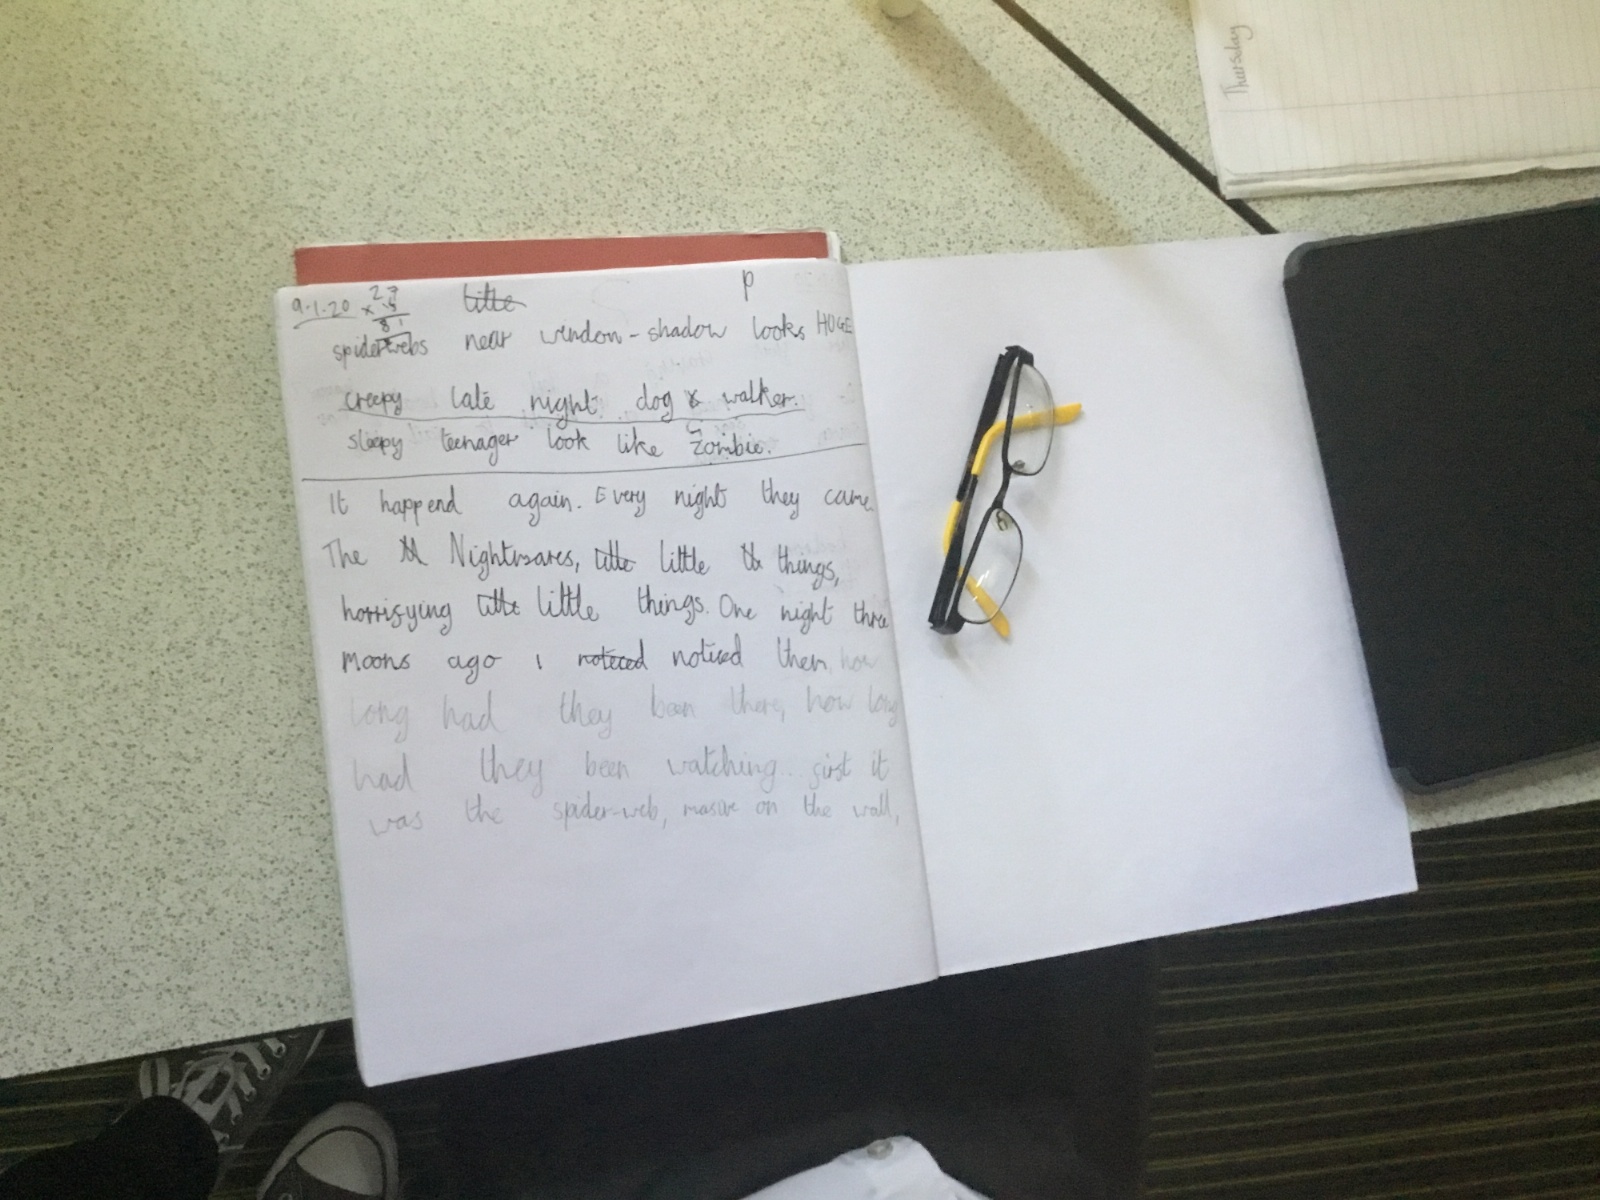 9.1.20
p
spiderwebs near window - shadow looks HUGE
creepy late night dog walker.
sleepy teenager look like zombie.
It happend again. Every night they came.
The Nightmares, little things,
horrifying little things. One night three
moons ago i noticed them, how
long had they been there, how long
had they been watching.. first it
was the spider-web, masive on the wall,
Thursday